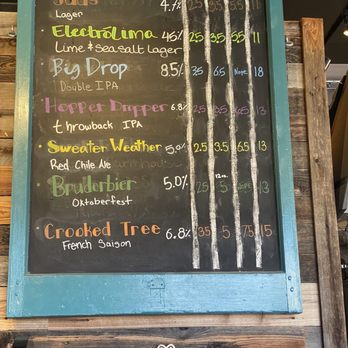 Lager 4.7% 2.5 3.5 5.5 11
ElectroLima 4.6% 2.5 3.5 5.5 11
Lime & Sea salt Lager
Big Drop 8.5% 3.5 6.5 Nope 18
Double IPA
Hopper Dropper 6.8% 2.5 3.5 6.5 13
throwback IPA
Sweater Weather 5.0% 2.5 3.5 6.5 13
Red Chile Ale
Bruderbier 5.0% 2.5 12oz. 5 Nope 13
Oktoberfest
Crooked Tree 6.8% 3.5 5 7.5 15
French Saison